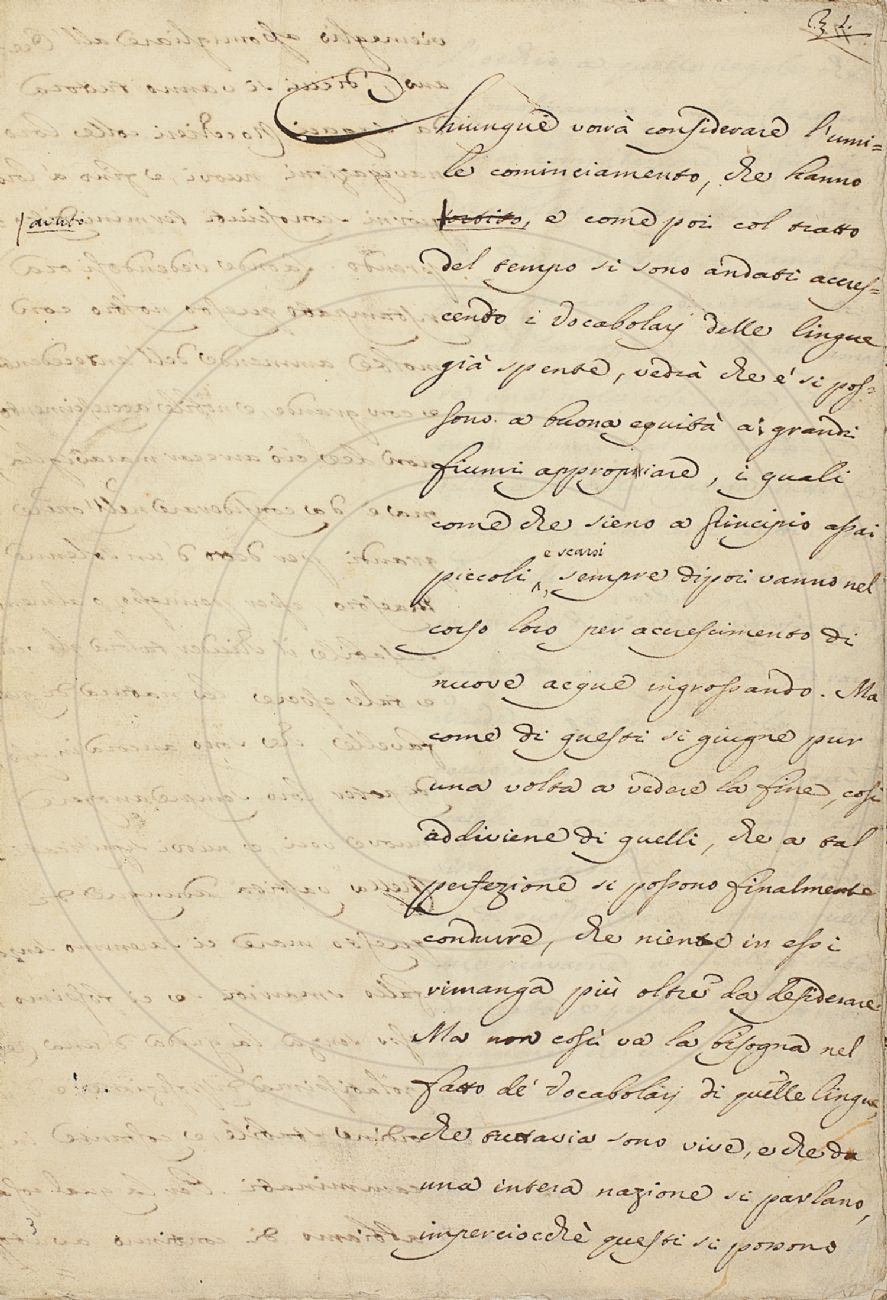 Chiunque vorrà considerare l'umi=
le cominciamento, che hanno
avuto
sortito, e come poi col tratto
del tempo si sono andati accres=
cendo i Vocabolarj delle lingue
già spente, vedrà che e' si pos=
sono a buona equità a' grandi
fiumi appropriare, i quali
come che sieno a principio assai
piccoli e scarsi, sempre dipoi vanno nel
corso loro per accrescimento di
nuove acque ingrossando. Ma
come di questi si giugne pur
una volta a vedere la fine, così
addiviene di quelli, che a tal
perfezione si possono finalmente
condurre, che niente in essi
rimanga più oltre da desiderare.
Ma non così va la bisogna nel
fatto de' Vocabolarj di quelle lingue,
che tuttavia sono vive, e che da
una intera nazione si parlano,
imperciocchè questi si possono
3